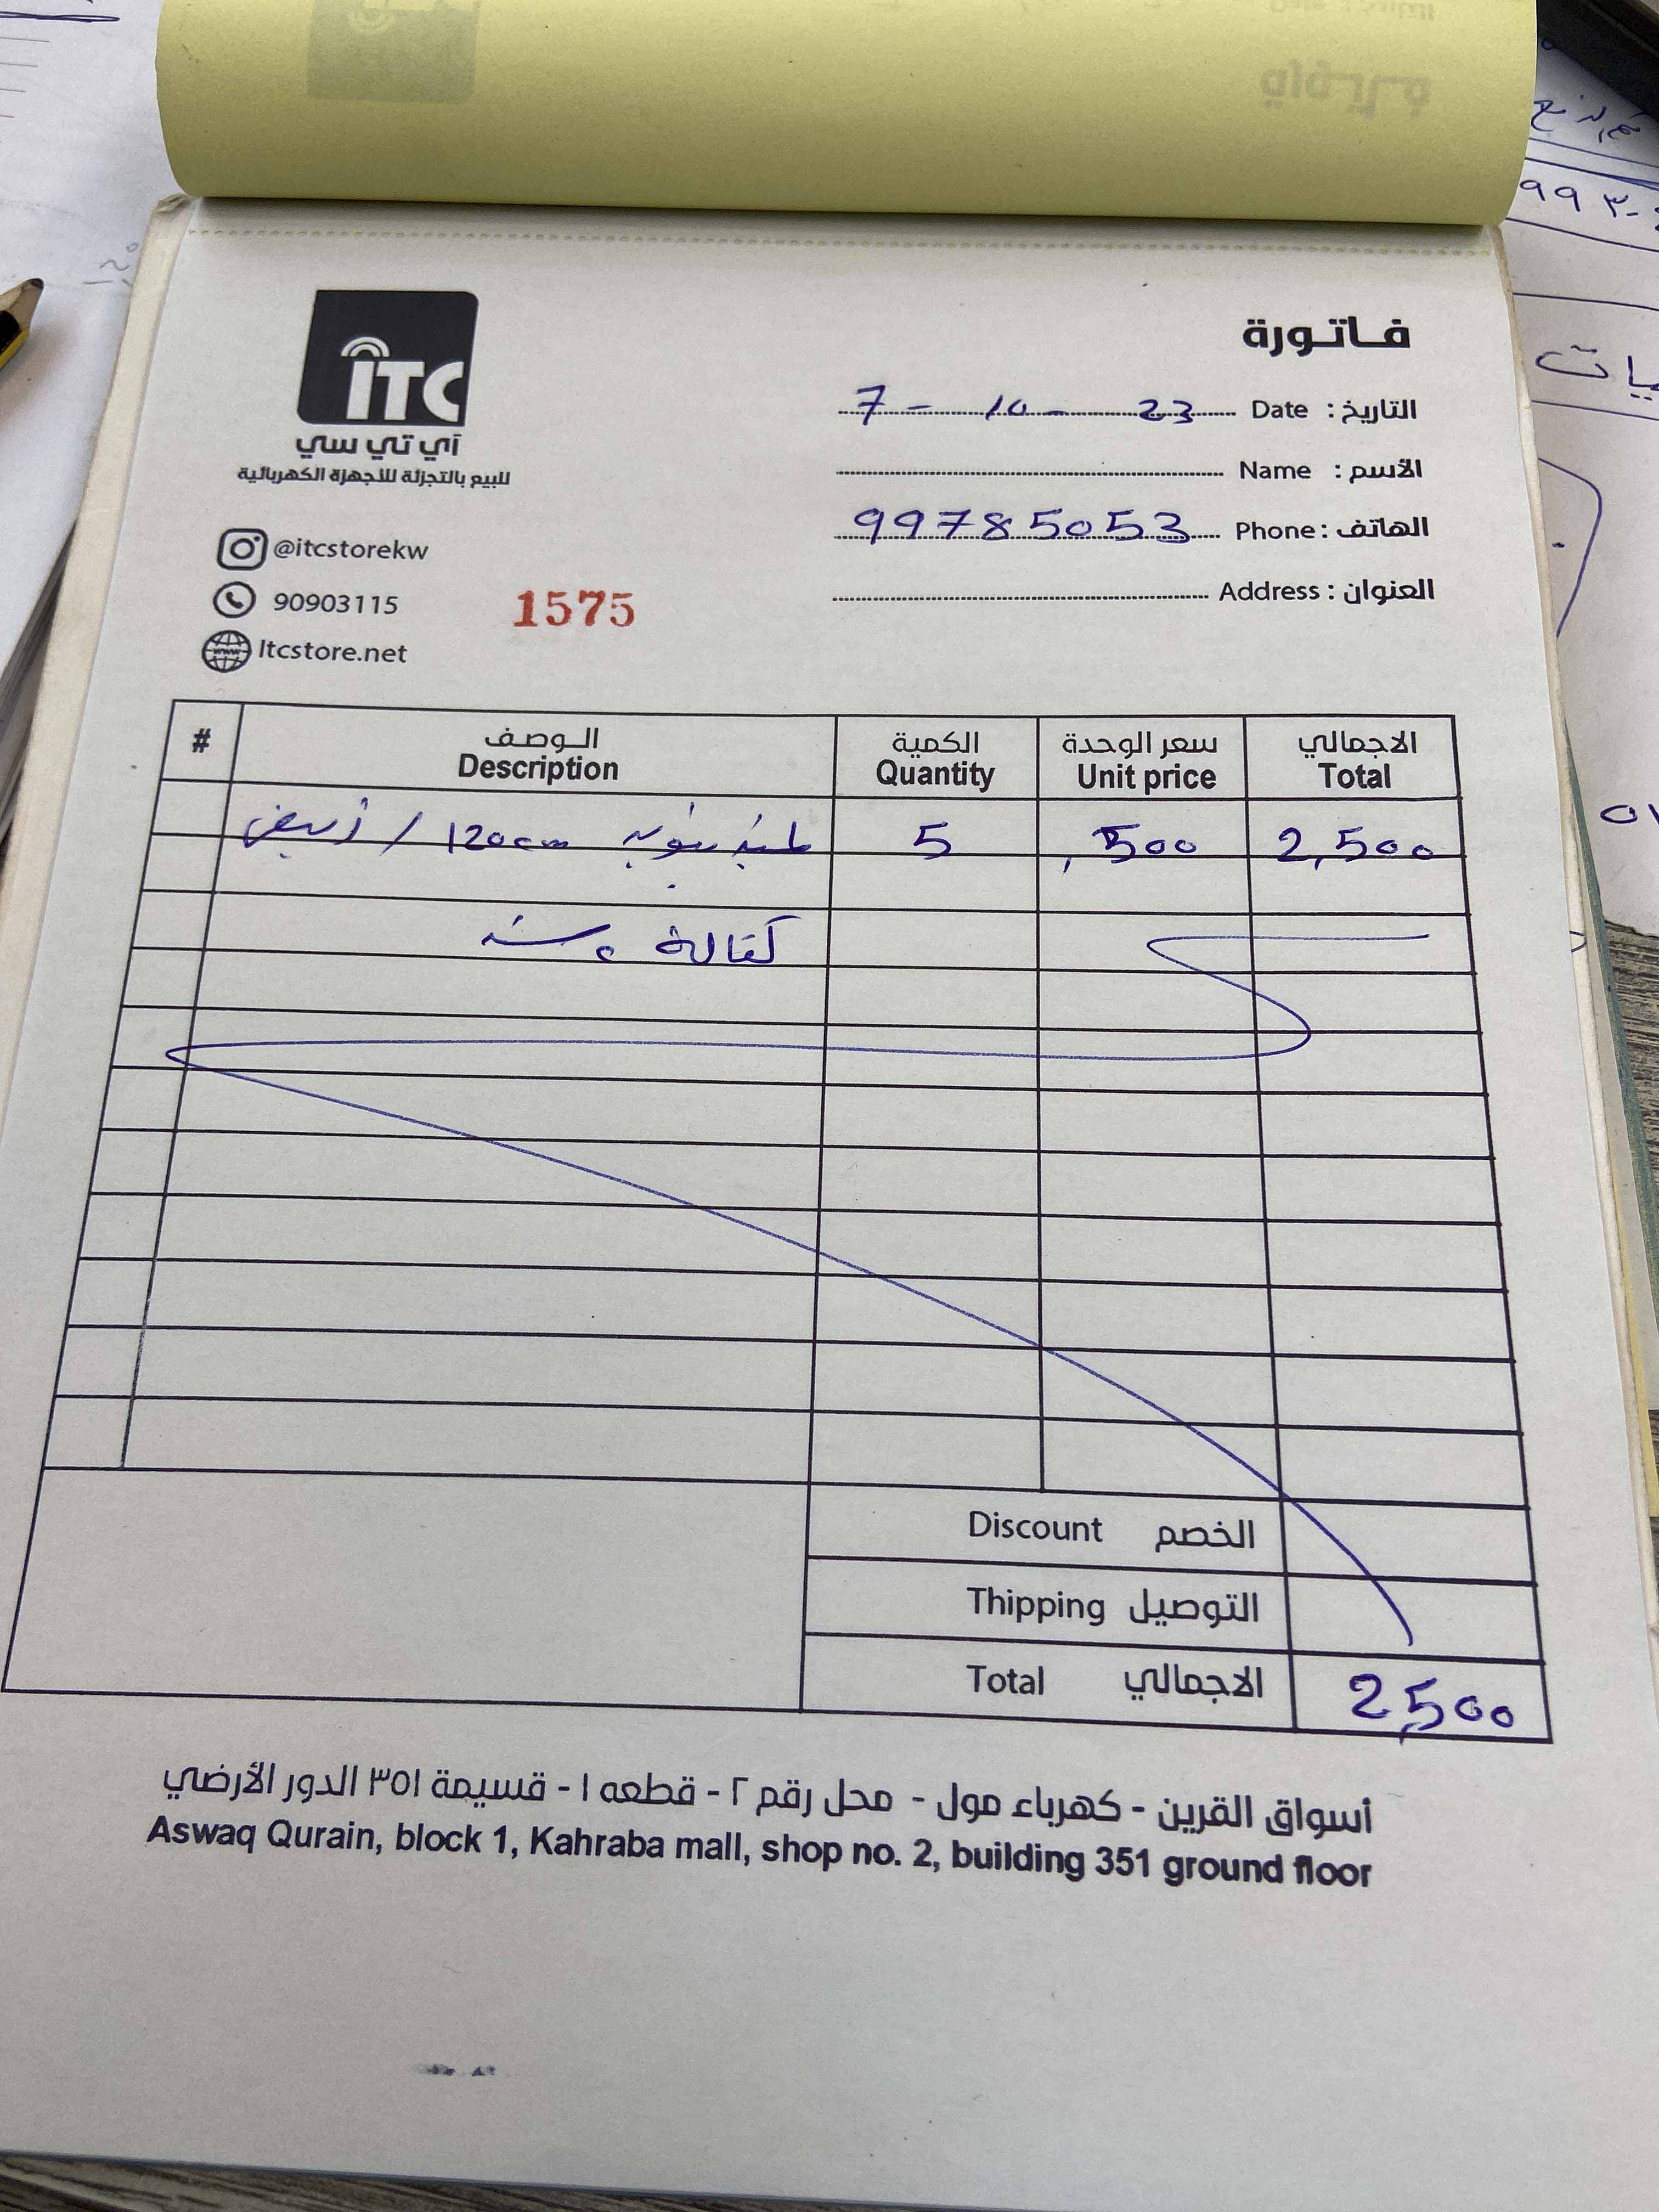 ITC
آي تي سي
للبيع بالتجزئة للأجهزة الكهربائية
@itcstorekw
90903115
Itcstore.net
1575
فـاتـورة
التاريخ : Date 7 - 10 - 23
الأسم : Name
الهاتف : Phone 99785053
العنوان : Address
# الـوصـف الكمية سعر الوحدة الاجمالي
Description Quantity Unit price Total
120cm / ابيض 5 ,500 2,500
كفالة سنة
Discount الخصم
Thipping التوصيل
Total الاجمالي 2,500
أسواق القرين - كهرباء مول - محل رقم ٢ - قطعه ١ - قسيمة ٣٥١ الدور الأرضي
Aswaq Qurain, block 1, Kahraba mall, shop no. 2, building 351 ground floor